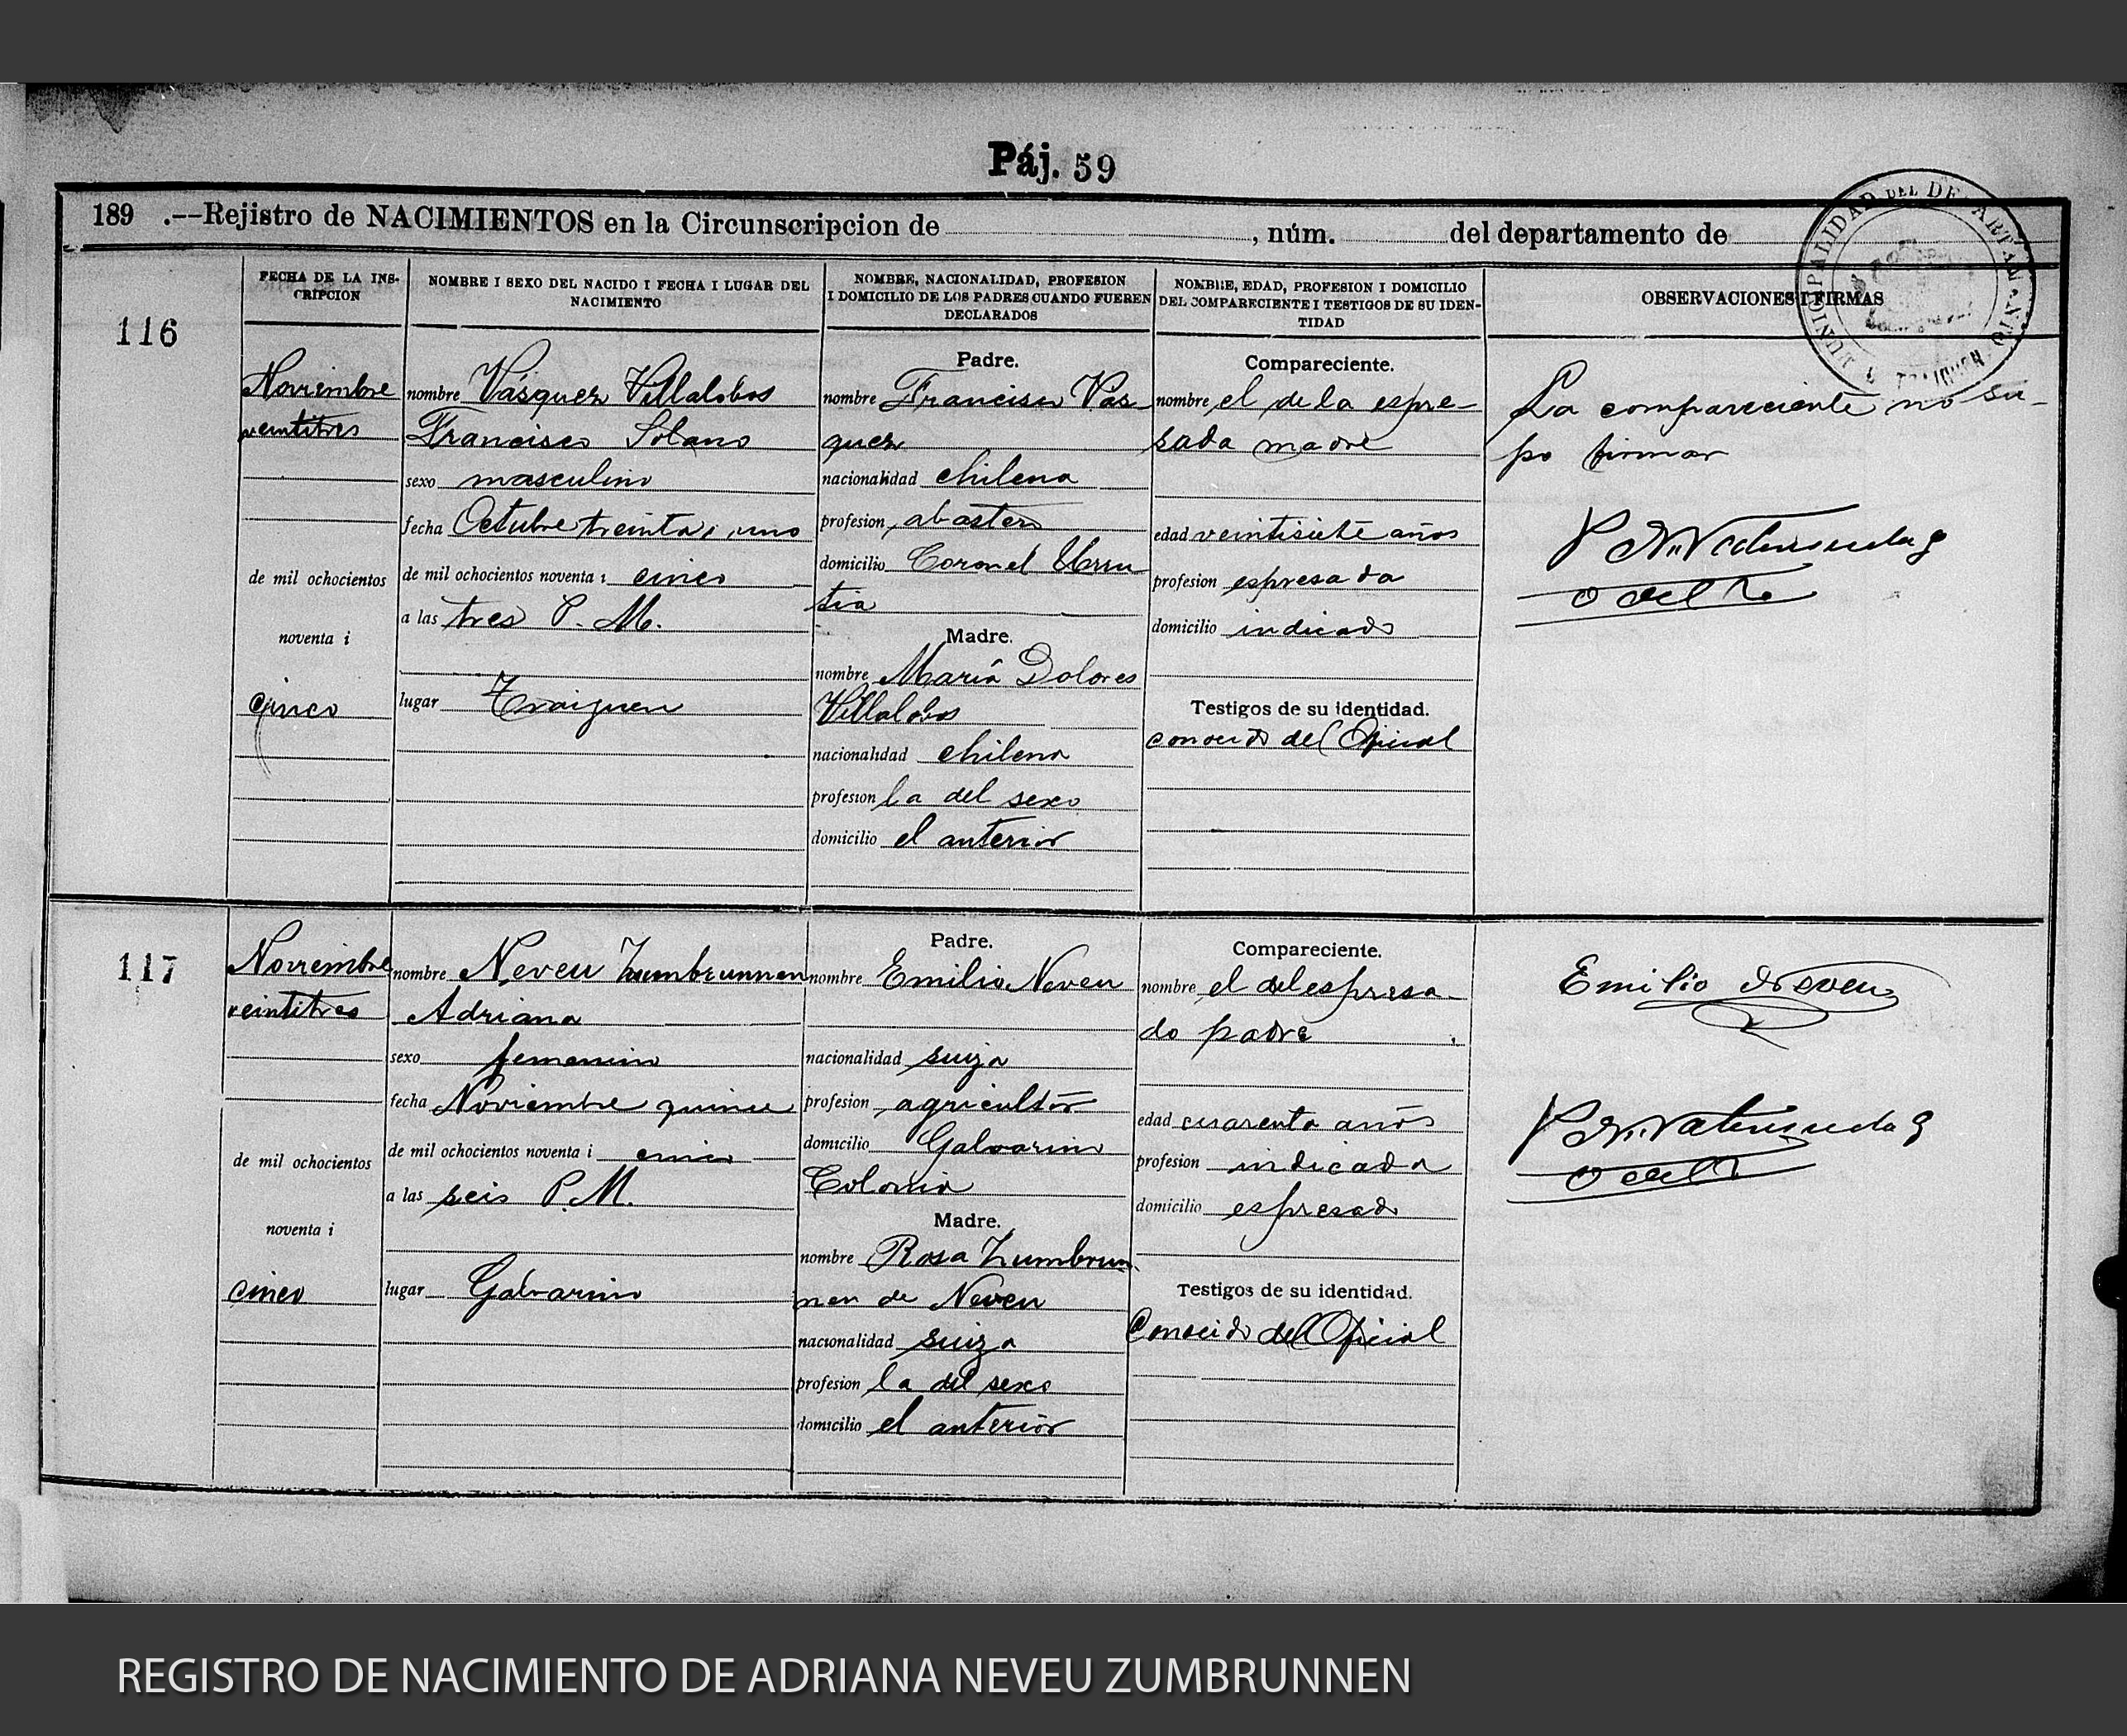 Páj. 59
189 .—Rejistro de NACIMIENTOS en la Circunscripcion de , núm. del departamento de
MUNICIPALIDAD DEL DEPARTAMENTO
FECHA DE LA INS-
CRIPCION
NOMBRE I SEXO DEL NACIDO I FECHA I LUGAR DEL
NACIMIENTO
NOMBRE, NACIONALIDAD, PROFESION
I DOMICILIO DE LOS PADRES CUANDO FUEREN
DECLARADOS
NOMBRE, EDAD, PROFESION I DOMICILIO
DEL COMPARECIENTE I TESTIGOS DE SU IDEN-
TIDAD
OBSERVACIONES I FIRMAS
116
Noviembre
veintitres
de mil ochocientos
noventa i
cinco
nombre Vásquez Villalobos
Francisco Solano
sexo masculino
fecha Octubre treinta i uno
de mil ochocientos noventa i cinco
a las tres P. M.
lugar Traiguen
Padre.
nombre Francisco Vás-
quez
nacionalidad chilena
profesion abastero
domicilio Coronel Urru
tia
Madre.
nombre María Dolores
Villalobos
nacionalidad chilena
profesion la del sexo
domicilio el anterior
Compareciente.
nombre el de la espre-
sada madre
edad veintisiete años
profesion espresada
domicilio indicado
Testigos de su identidad.
conocido del Oficial
La compareciente no su-
po firmar
117
Noviembre
veintitres
de mil ochocientos
noventa i
cinco
nombre Neveu Zumbrunnen
Adriana
sexo femenino
fecha Noviembre quince
de mil ochocientos noventa i cinco
a las seis P.M.
lugar Galvarino
Padre.
nombre Emilio Neveu
nacionalidad suiza
profesion agricultor
domicilio Galvarino
Colonia
Madre.
nombre Rosa Zumbrun
nen de Neveu
nacionalidad suiza
profesion la del sexo
domicilio el anterior
Compareciente.
nombre el del espresa-
do padre
edad cuarenta años
profesion indicada
domicilio espresado
Testigos de su identidad.
Conocido del Oficial
Emilio Neveu
REGISTRO DE NACIMIENTO DE ADRIANA NEVEU ZUMBRUNNEN